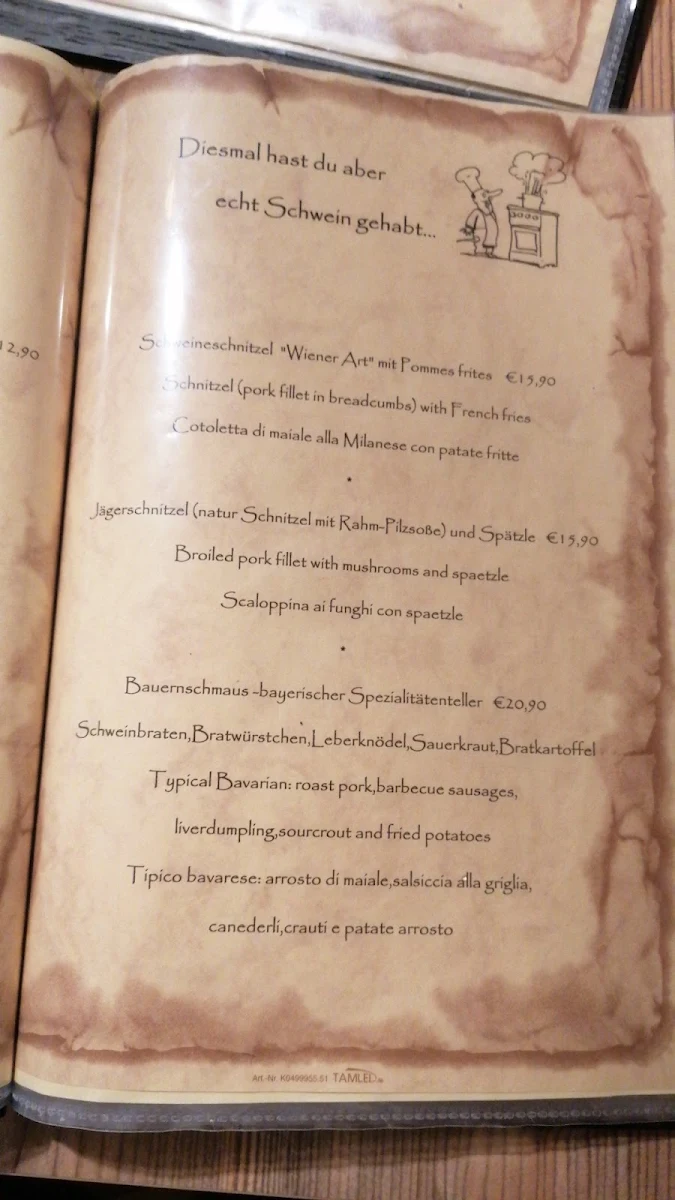 Diesmal hast du aber
echt Schwein gehabt...
12,90
Schweineschnitzel "Wiener Art" mit Pommes frites €15,90
Schnitzel (pork fillet in breadcumbs) with French fries
Cotoletta di maiale alla Milanese con patate fritte
•
Jägerschnitzel (natur Schnitzel mit Rahm-Pilzsoße) und Spätzle €15,90
Broiled pork fillet with mushrooms and spaetzle
Scaloppina ai funghi con spaetzle
•
Bauernschmaus -bayerischer Spezialitätenteller €20,90
Schweinbraten,Bratwürstchen,Leberknödel,Sauerkraut,Bratkartoffel
Typical Bavarian: roast pork,barbecue sausages,
liverdumpling,sourcrout and fried potatoes
Tipico bavarese: arrosto di maiale,salsiccia alla griglia,
canederli,crauti e patate arrosto
Art.-Nr. K0499955.51 TAMLED